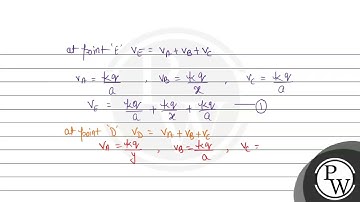 at point 'E' V_E = V_A + V_B + V_C
V_A = kq/a , V_B = kq/x , V_C = kq/a
V_E = kq/a + kq/x + kq/a — ①
at point 'D' V_D = V_A + V_B + V_C
V_A = kq/y , V_B = kq/a , V_C =
P
W